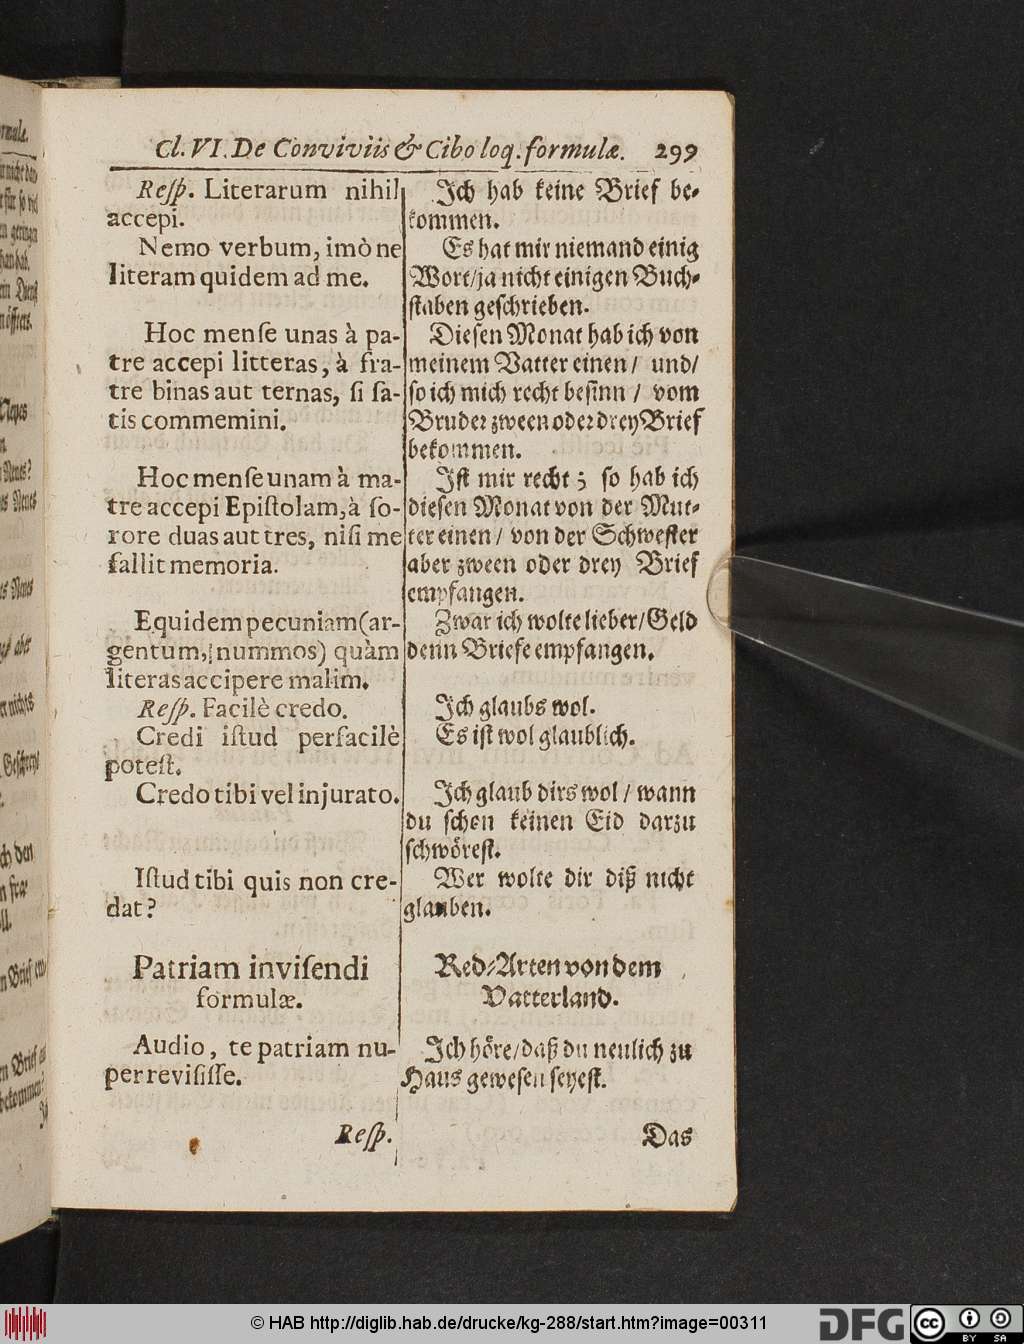 Cl. VI. De Conviviis & Cibo loq. formulæ. 299
Resp. Literarum nihil
accepi.
Nemo verbum, imò ne
literam quidem ad me.
Hoc mense unas à pa-
tre accepi litteras, à fra-
tre binas aut ternas, si sa-
tis commemini.
Hoc mense unam à ma-
tre accepi Epistolam, à so-
rore duas aut tres, nisi me
fallit memoria.
Equidem pecuniam (ar-
gentum, nummos) quàm
literas accipere malim.
Resp. Facilè credo.
Credi istud perfacilè
potest.
Credo tibi vel injurato.
Istud tibi quis non cre-
dat?
Patriam invisendi
formulæ.
Audio, te patriam nu-
per revisisse.
Resp.
Ich hab keine Brief be-
kommen.
Es hat mir niemand einig
Wort/ja nicht einigen Buch-
staben geschrieben.
Diesen Monat hab ich von
meinem Vatter einen / und/
so ich mich recht besinn / vom
Bruder zween oder drey Brief
bekommen.
Ist mir recht; so hab ich
diesen Monat von der Mut-
ter einen / von der Schwester
aber zween oder drey Brief
empfangen.
Zwar ich wolte lieber/Geld
denn Briefe empfangen.
Ich glaubs wol.
Es ist wol glaublich.
Ich glaub dirs wol / wann
du schon keinen Eid darzu
schwörest.
Wer wolte dir diß nicht
glauben.
Red-Arten von dem
Vatterland.
Ich höre/daß du neulich zu
Haus gewesen seyest.
Das
© HAB http://diglib.hab.de/drucke/kg-288/start.htm?image=00311
DFG
cc BY SA